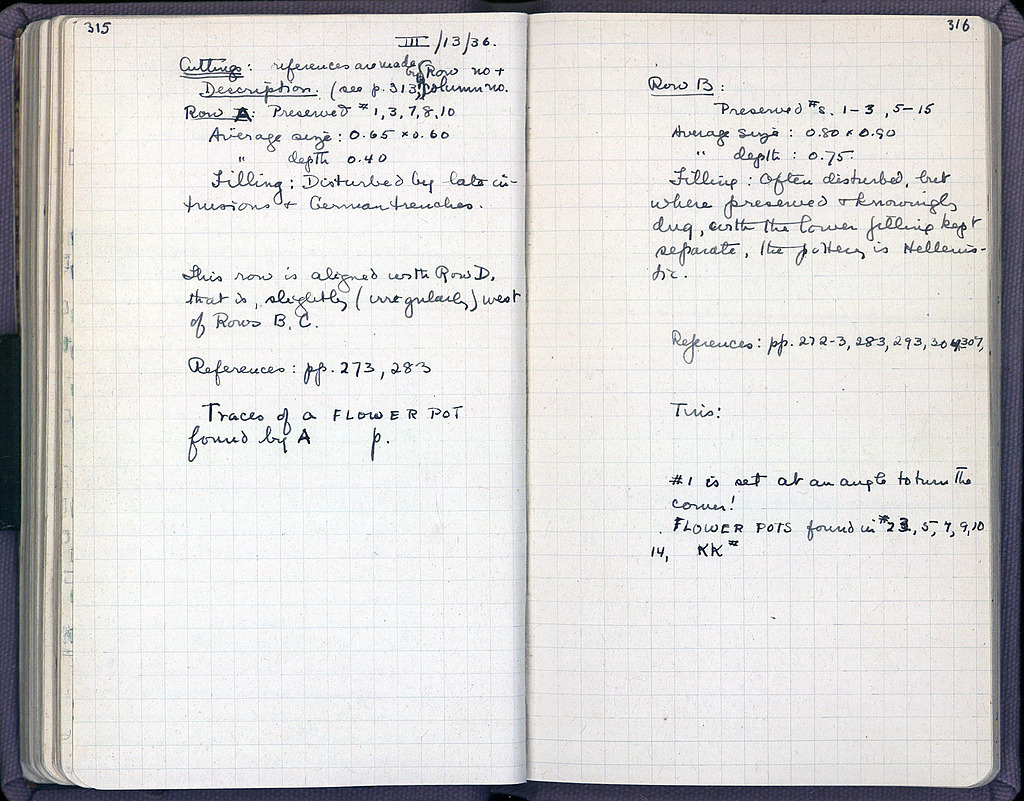 315
III/13/36.
Cuttings: references are made by Row no +
Description. (see p. 313, column no.
Row A: Preserved # 1, 3, 7, 8, 10
Average size: 0.65 x 0.60
" depth 0.40
Filling: Disturbed by late in-
trusions + German trenches.
This row is aligned with Row D,
that is, slightly (irregularly) west
of Rows B, C.
References: pp. 273, 283
Traces of a FLOWER POT
found by A p.
316
Row B:
Preserved #s. 1-3, 5-15
Average size: 0.80 x 0.90
" depth: 0.75.
Filling: Often disturbed, but
where preserved + knowingly
dug, with the lower filling kept
separate, the pottery is Hellenis-
tic.
References: pp. 272-3, 283, 293, 304, 307,
This:
#1 is set at an angle to turn the
corner!
FLOWER POTS found in # 2, 3, 5, 7, 9, 10
14, KK #